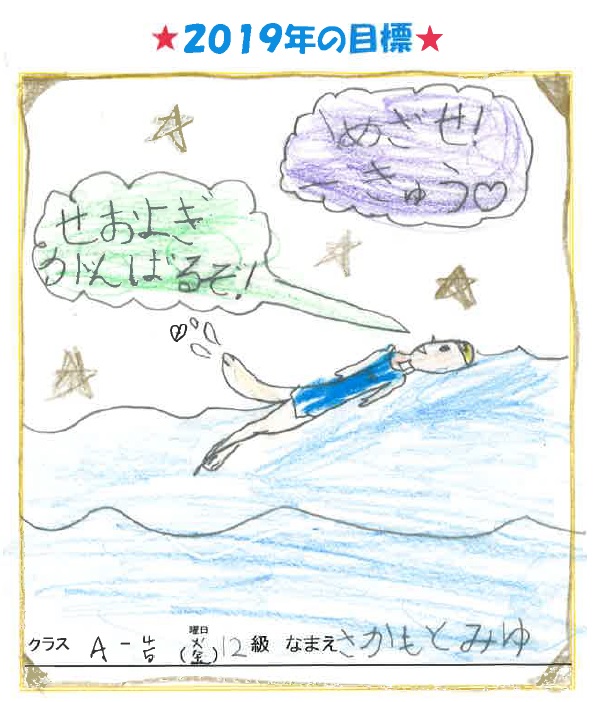 ★2019年の目標★
めざせ!
一きゅう♡
せおよぎ
がんばるぞ!
クラス A-4/5 曜日(火/金) 12級 なまえ さかもとみゆ